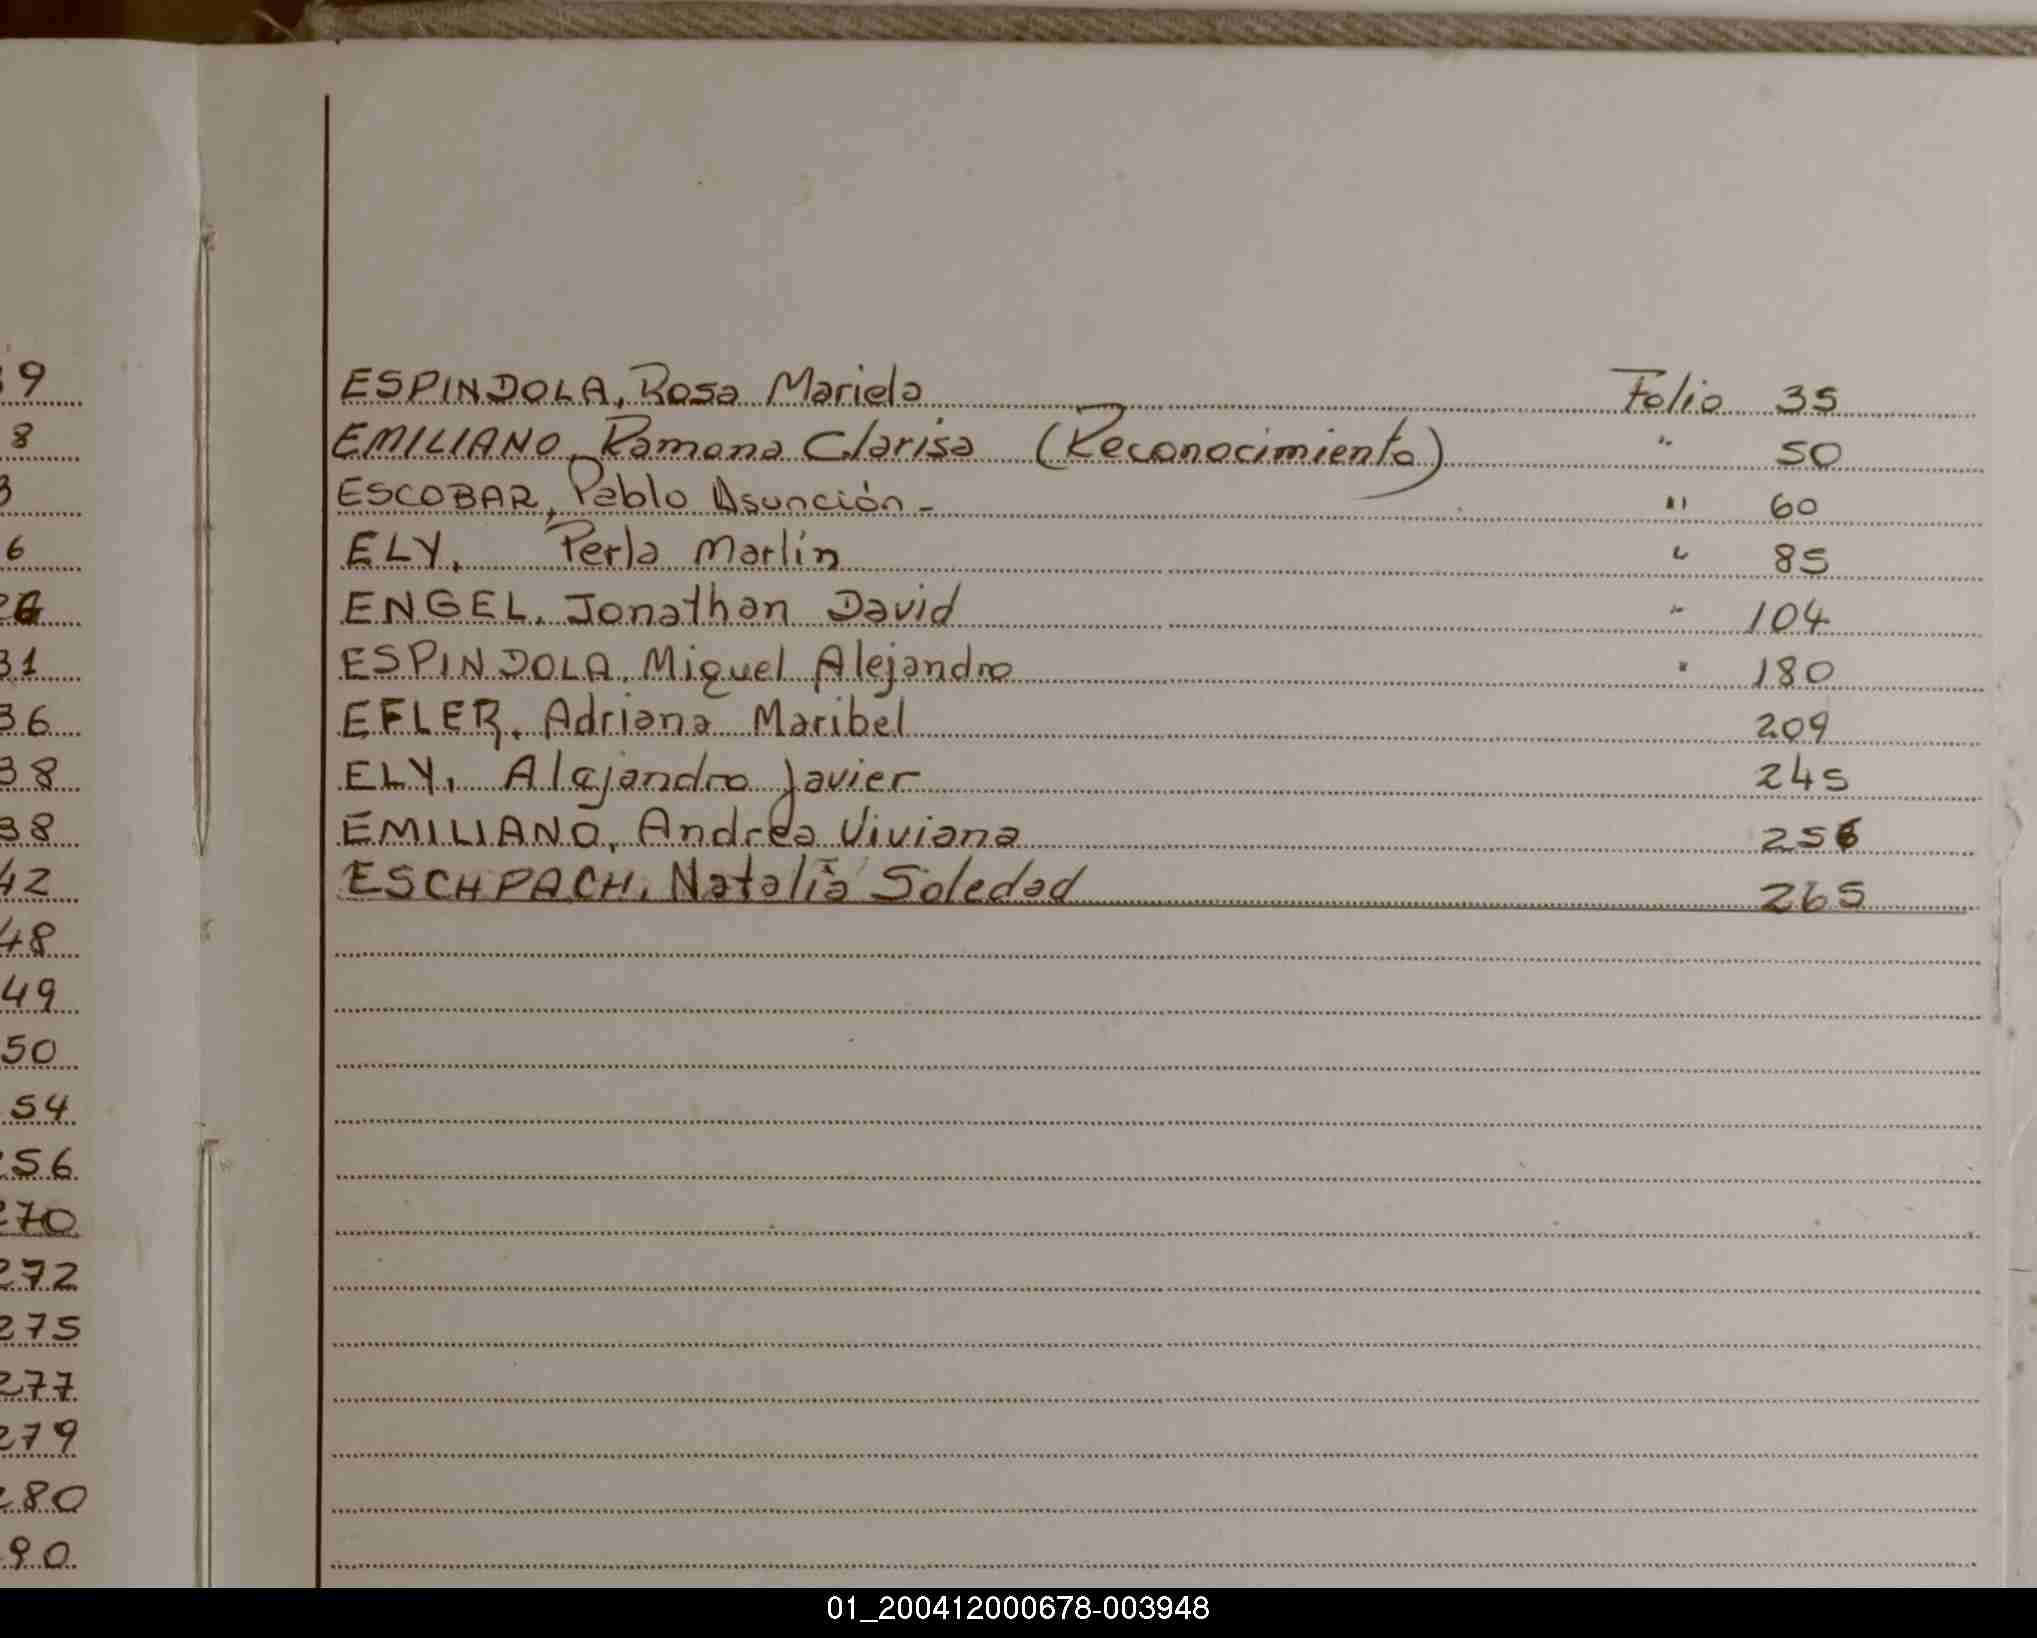 9
8
3
6
26
31
36
38
38
42
48
49
50
54
256
270
272
275
277
279
280
90
ESPINDOLA, Rosa Mariela Folio 35
EMILIANO, Ramona Clarisa (Reconocimiento) " 50
ESCOBAR, Pablo Asunción - " 60
ELY, Perla Marlin " 85
ENGEL, Jonathan David " 104
ESPINDOLA, Miguel Alejandro " 180
EFLER, Adriana Maribel 209
ELY, Alejandro Javier 245
EMILIANO, Andrea Viviana 256
ESCHPACH, Natalia Soledad 265
01_200412000678-003948